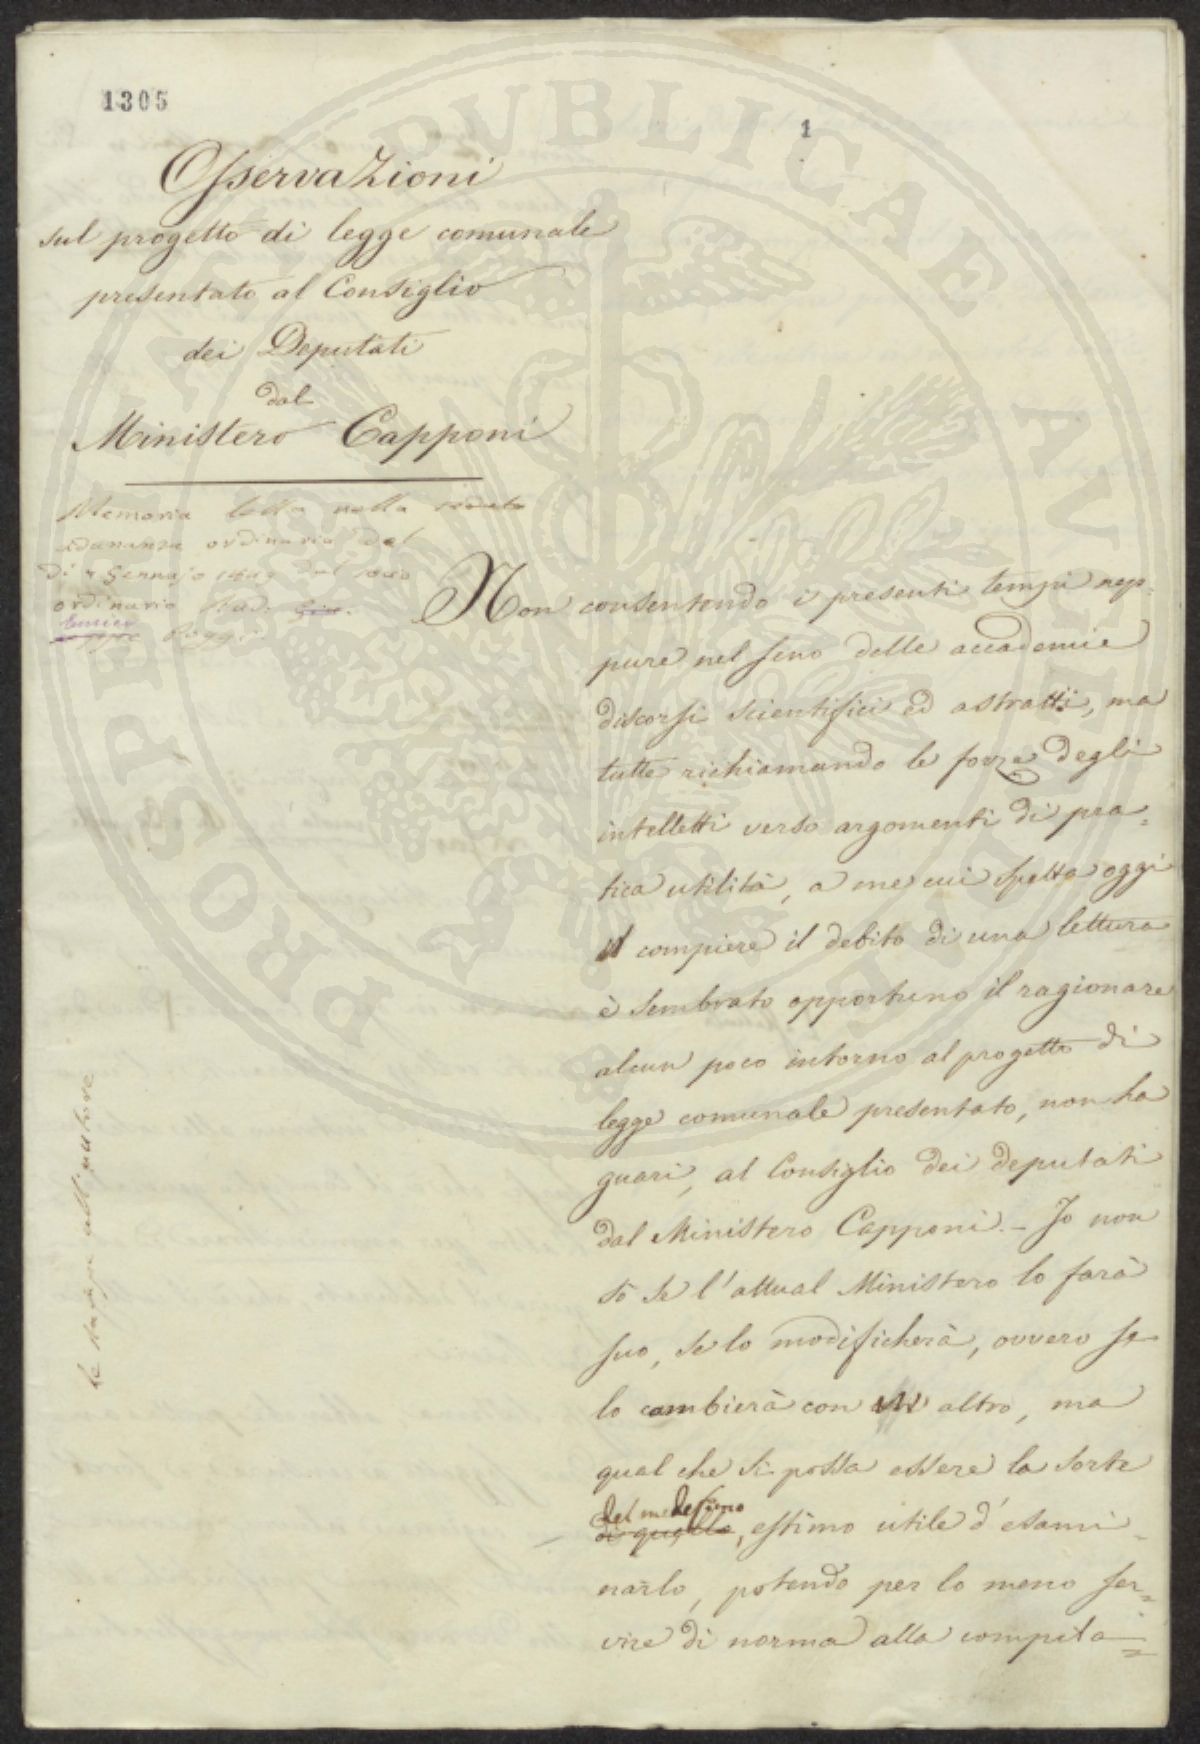 1305
1
Osservazioni
sul progetto di legge comunale
presentato al Consiglio
dei Deputati
dal
Ministero Capponi
Memoria letta nella
adunanza ordinaria del
di 7 Gennajo 1849 dal socio
ordinario
Enrico
Poggi
Non consentendo i presenti tempi nep-
pure nel seno delle accademie
discorsi scientifici ed astratti, ma
tutte richiamando le forze degli
intelletti verso argomenti di pra-
tica utilità, a me cui spetta oggi
il compiere il debito di una lettura
è sembrato opportuno il ragionare
alcun poco intorno al progetto di
legge comunale presentato, non ha
guari, al Consiglio dei deputati
dal Ministero Capponi. – Io non
sò se l'attual Ministero lo farà
suo, se lo modificherà, ovvero se
lo cambierà con un altro, ma
qual che si possa essere la sorte
del medesimo
di quello, estimo utile d'esami-
narlo, potendo per lo meno ser-
vire di norma alla compila=
PROSPERITATI PUBLICAE AUGENDAE